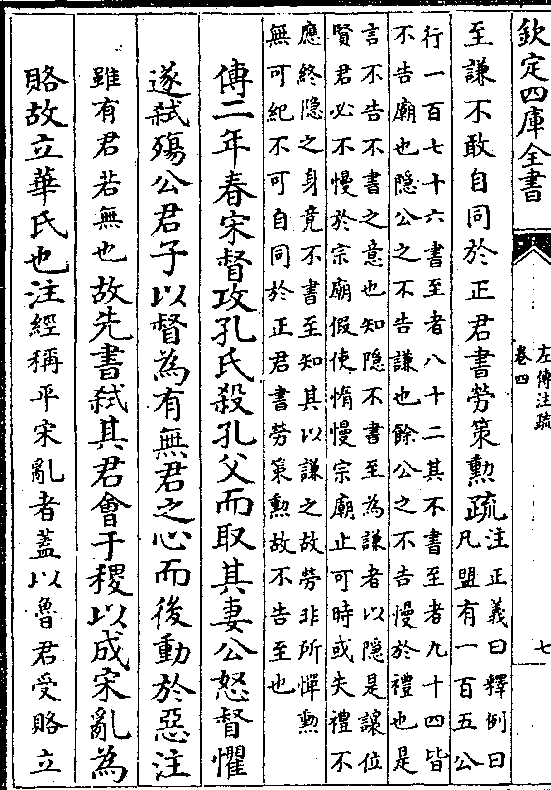 欽定四庫全書
左傳注疏
卷四
七
至謙不敢自同於正君書勞策勲疏
注正義曰釋例曰
凡盟有一百五公
行一百七十六書至者八十二其不書至者九十四皆
不告廟也隱公之不告謙也餘公之不告慢於禮也是
言不告不書之意也知隱不書至為謙者以隱是讓位
賢君必不慢於宗廟假使惰慢宗廟止可時或失禮不
應終隱之身竟不書至知其以謙之故勞非所憚勲
無可紀不可自同於正君書勞策勲故不告至也
傳二年春宋督攻孔氏殺孔父而取其妻公怒督懼
遂弑殤公君子以督為有無君之心而後動於惡注
雖有君若無也故先書弑其君會于稷以成宋亂為
賂故立華氏也注經稱平宋亂者蓋以魯君受賂立